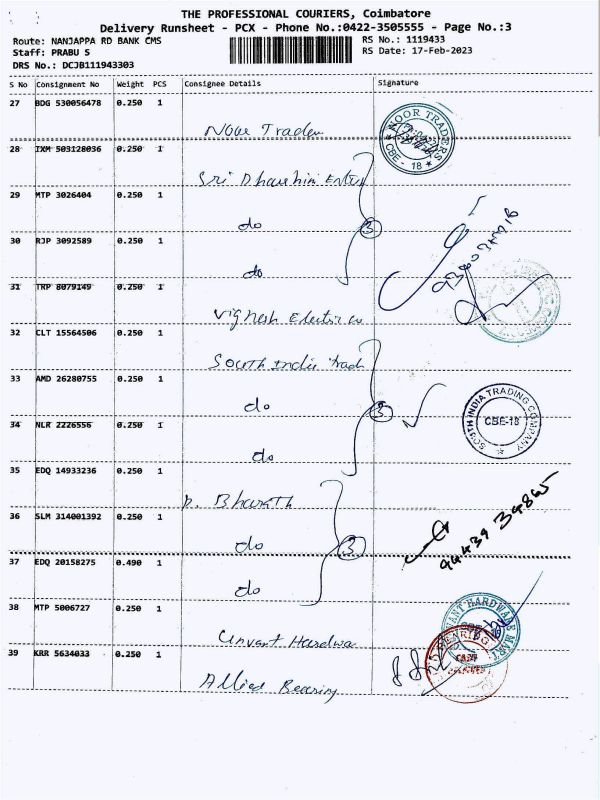 THE PROFESSIONAL COURIERS, Coimbatore
Delivery Runsheet - PCX - Phone No.:0422-3505555 - Page No.:3
Route: NANJAPPA RD BANK CMS
RS No.: 1119433
Staff: PRABU S
RS Date: 17-Feb-2023
DRS No.: DCJB111943303
S No Consignment No Weight PCS Consignee Details Signature
27 BDG 530056478 0.250 1
Noor Traders
NOOR TRADERS
CBE - 18
28 IXM 503128036 0.250 1
Sri Dharshini Enter
29 MTP 3026404 0.250 1
do
3
30 RJP 3092589 0.250 1
do
31 TRP 8079149 0.250 1
Vignesh Electrico
32 CLT 15564506 0.250 1
South India Trad
33 AMD 26280755 0.250 1
do
3
SOUTH INDIA TRADING COMPANY
CBE-18
34 NLR 2226556 0.250 1
do
35 EDQ 14933236 0.250 1
P. Bharath
36 SLM 314001392 0.250 1
do
3
94439 34865
37 EDQ 20158275 0.490 1
do
38 MTP 5006727 0.250 1
Unvant Hardwa
HARDWARE MART
39 KRR 5634033 0.250 1
Allied Bearing
BEARING